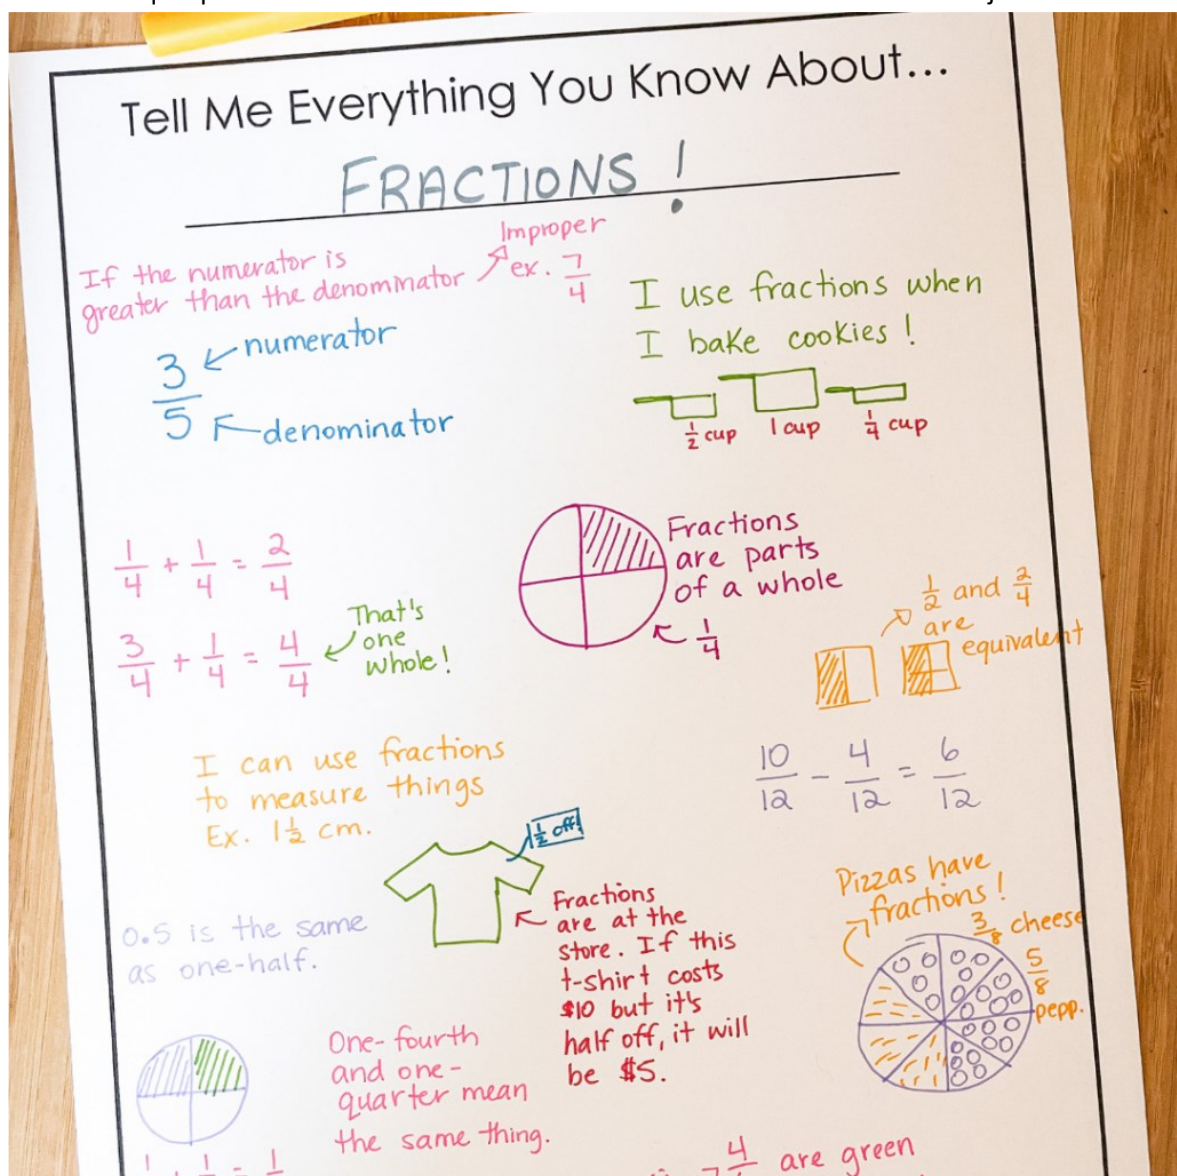 Tell Me Everything You Know About...
FRACTIONS!
If the numerator is
greater than the denominator
Improper
ex. 7/4
3/5
numerator
denominator
I use fractions when
I bake cookies!
1/2 cup
1 cup
1/4 cup
1/4 + 1/4 = 2/4
3/4 + 1/4 = 4/4
That's
one
whole!
Fractions
are parts
of a whole
1/4
1/2 and 2/4
are
equivalent
I can use fractions
to measure things
Ex. 1 1/2 cm.
10/12 - 4/12 = 6/12
1/2 off!
Fractions
are at the
store. If this
t-shirt costs
$10 but it's
half off, it will
be $5.
0.5 is the same
as one-half.
Pizzas have
fractions!
3/8 cheese
5/8
pepp.
One-fourth
and one-
quarter mean
the same thing.
4
are green